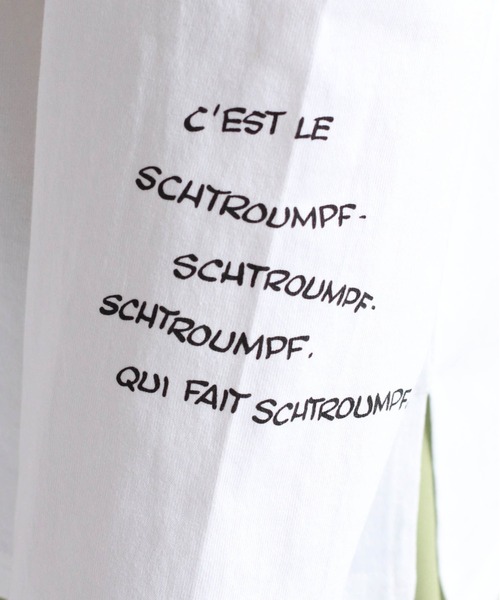 C'EST LE
SCHTROUMPF-
SCHTROUMPF.
SCHTROUMPF.
QUI FAIT SCHTROUMPF.